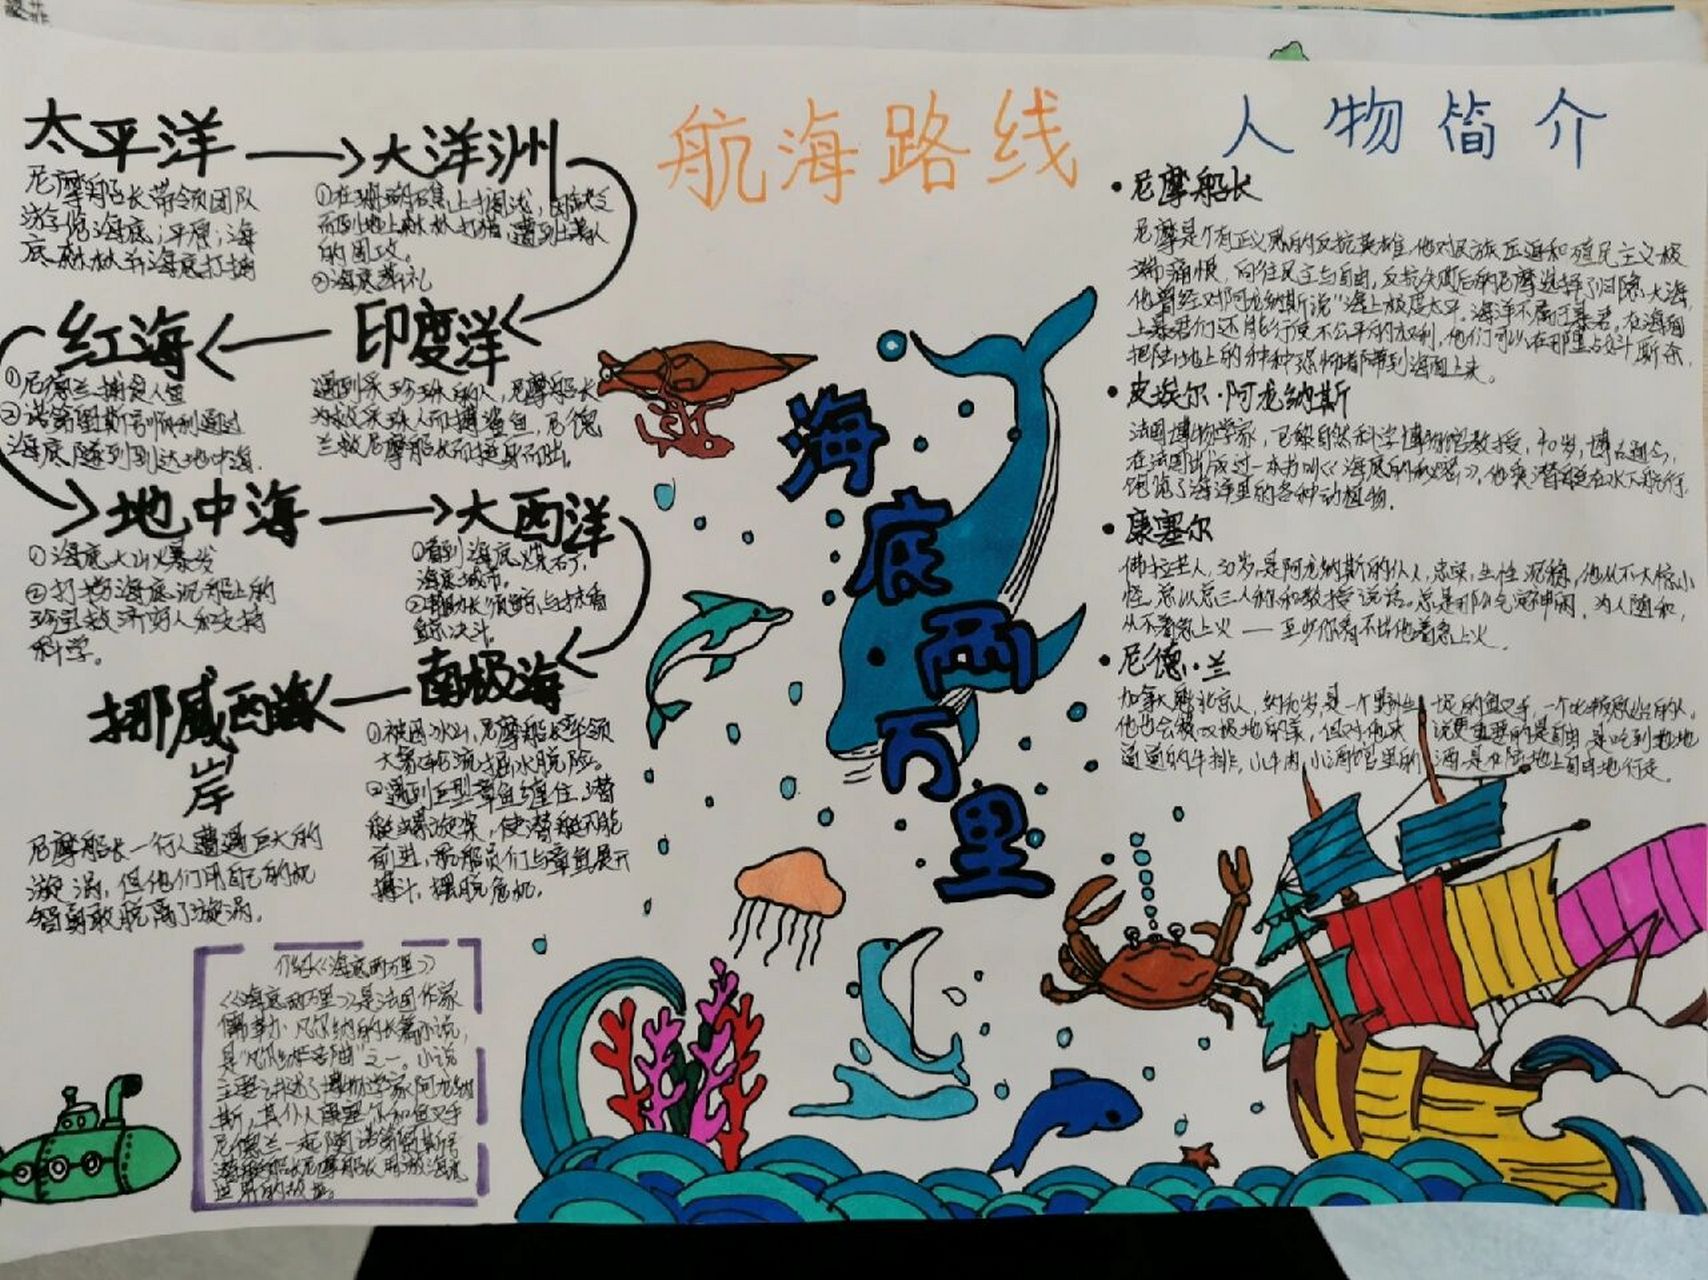 航海路线
太平洋
尼摩船长带领团队
游览海底;平原;海
底森林并海底打猎
大洋洲
①在珊瑚礁上搁浅,因缺乏
而到地上森林打猎,遭到土著人
的围攻。
②海底葬礼
印度洋
遇到采珍珠的人,尼摩船长
为救采珠人而搏鲨鱼,尼德
兰救尼摩船长而挺身而出。
红海
①尼德兰捕食人鱼
②诺第留斯号顺利通过
海底隧到到达地中海.
地中海
①海底火山火暴发
②打捞海底沉船上的
珍宝救济穷人和支持
科学。
大西洋
①看到海底
海底城市。
②船长 与抹香
鲸决斗.
南极海
①被困冰山,尼摩船长率领
大 脱险。
②遇到巨型章鱼缠住了潜
艇螺旋桨,使潜艇不能
前进,船员们与章鱼展开
搏斗,摆脱危机.
挪威西海
岸
尼摩船长一行人遭遇巨大的
漩涡,但他们用自己的机
智勇敢脱离了漩涡.
介绍《海底两万里》
《海底两万里》是法国作家
儒勒·凡尔纳的长篇小说,
是"凡尔纳 "之一。小说
主要讲述了博物学家阿龙纳
斯,其仆人康塞尔和鱼叉手
尼德兰一起随诺第留斯号
潜艇船长尼摩船长周游海底
世界的故事。
海底两万里
人物简介
• 尼摩船长
尼摩是个有正义感的反抗英雄,他对民族压迫和殖民主义极
端痛恨,向往民主与自由,反抗失败后的尼摩选择了归隐大海,
他曾经对阿龙纳斯说"海上极度太平。海洋不属于暴君。在海面
上暴君们还能行使不公平的权利,他们可以在那里占奴斗厮杀,
把陆地上的种种恐怖都带到海面上来。
• 皮埃尔·阿龙纳斯
法国博物学家,巴黎自然科学博物馆教授,40岁,博古通今,
在法国出版过一本书叫《海底的秘密》,他乘潜艇在水下航行,
饱览了海洋里的各种动植物.
• 康塞尔
佛拉芒人,30岁,是阿龙纳斯的仆人,忠实,生性沉稳,他从不大惊小
怪,总以第三人称和教授说话。总是那么气定神闲,为人随和,
从不着急上火——至少你看不出他着急上火.
• 尼德·兰
加拿大魁北京人,约40岁,是一个野性十足的鱼叉手,一个比较原始的人,
他也会 ,但对他来说更重要的是自由,是吃到地地
道道的牛排,小牛肉,小酒馆里的酒,是在陆地上自由地行走.